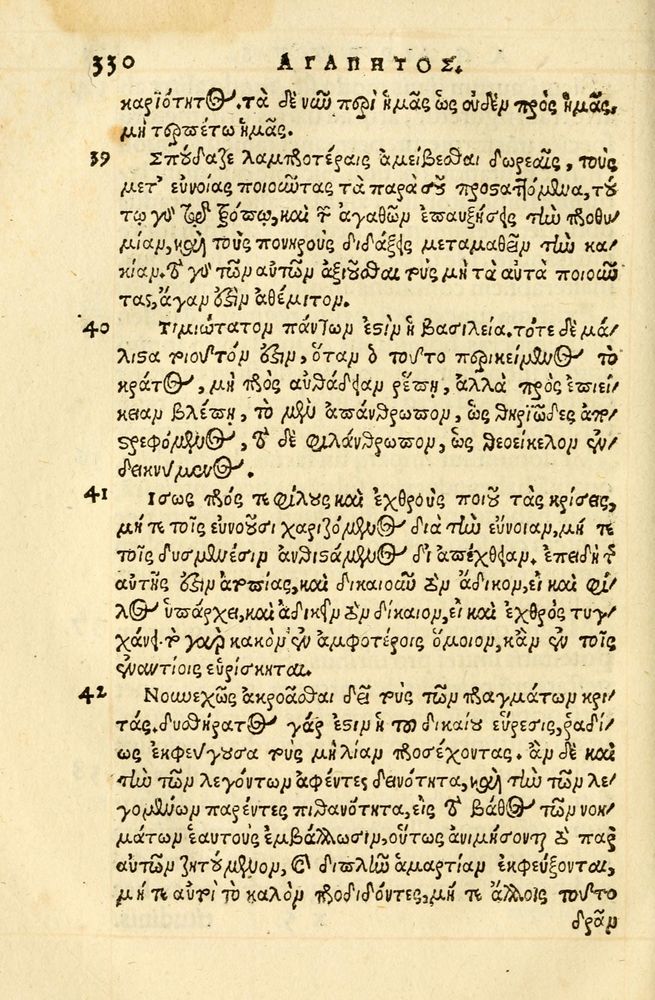 330 ΑΓΑΠΗΤΟΣ.
καριότητος. τὰ δὲ νῦν περὶ ἡμᾶς ὡς οὐδὲν πρὸς ἡμᾶς,
μὴ τερπέτω ἡμᾶς.
39 Σπούδαζε λαμπροτέραις ἀμείβεσθαι δωρεαῖς, τοὺς
μετ' εὐνοίας ποιοῦντας τὰ παρὰ σοῦ προσταττόμενα, τού-
τῳ γὰρ τῷ τρόπῳ, καὶ τῶν ἀγαθῶν ἐπαυξήσεις τὴν προθυ-
μίαν, καὶ τοὺς πονηροὺς διδάξεις μεταμαθεῖν τὴν κα-
κίαν. τὸ γὰρ τῶν αὐτῶν ἀξιοῦσθαι τοὺς μὴ τὰ αὐτὰ ποιοῦν-
τας, ἄγαν ἐστὶν ἀθέμιτον.
40 Τιμιώτατον πάντων ἐστὶν ἡ βασιλεία. τότε δὲ μά-
λιστα τοιοῦτόν ἐστιν, ὅταν ὁ τοῦτο περικείμενος τὸ
κράτος, μὴ πρὸς αὐθάδειαν ῥέπῃ, ἀλλὰ πρὸς ἐπιεί-
κειαν βλέπῃ, τὸ μὲν ἀπάνθρωπον, ὡς θηριῶδες ἀπο-
στρεφόμενος, τὸ δὲ φιλάνθρωπον, ὡς θεοείκελον ἐν-
δεικνύμενος.
41 Ἴσως πρός τε φίλους καὶ ἐχθροὺς ποιοῦ τὰς κρίσεις,
μήτε τοῖς εὐνοοῦσι χαριζόμενος διὰ τὴν εὔνοιαν, μήτε
τοῖς δυσμενέσιν ἀνθιστάμενος δι' ἀπέχθειαν. ἐπειδὴ τῆς
αὐτῆς ἐστὶν ἀτοπίας, καὶ δικαιοῦν τὸν ἄδικον, εἰ καὶ φί-
λος ὑπάρχει, καὶ ἀδικεῖν τὸν δίκαιον, εἰ καὶ ἐχθρὸς τυγ-
χάνει. τὸ γὰρ κακὸν ἐν ἀμφοτέροις ὅμοιον, κἂν ἐν τοῖς
ἐναντίοις εὑρίσκηται.
42 Νουνεχῶς ἀκροᾶσθαι δεῖ τοὺς τῶν πραγμάτων κρι-
τάς. δυσθήρατος γάρ ἐστιν ἡ τοῦ δικαίου εὕρεσις, ῥᾳδί-
ως ἐκφεύγουσα τοὺς μὴ λίαν προσέχοντας. ἂν δὲ καὶ
τὴν τῶν λεγόντων ἀφέντες δεινότητα, καὶ τὴν τῶν λε-
γομένων παρέντες πιθανότητα, εἰς τὸ βάθος τῶν νοη-
μάτων ἑαυτοὺς ἐμβάλλωσιν, οὕτως ἀνιμήσονται τὸ παρ'
αὐτῶν ζητούμενον, καὶ διπλῆν ἁμαρτίαν ἐκφεύξονται,
μήτε αὐτοὶ τὸ καλὸν προδιδόντες, μήτε ἄλλοις τοῦτο
δρᾶν